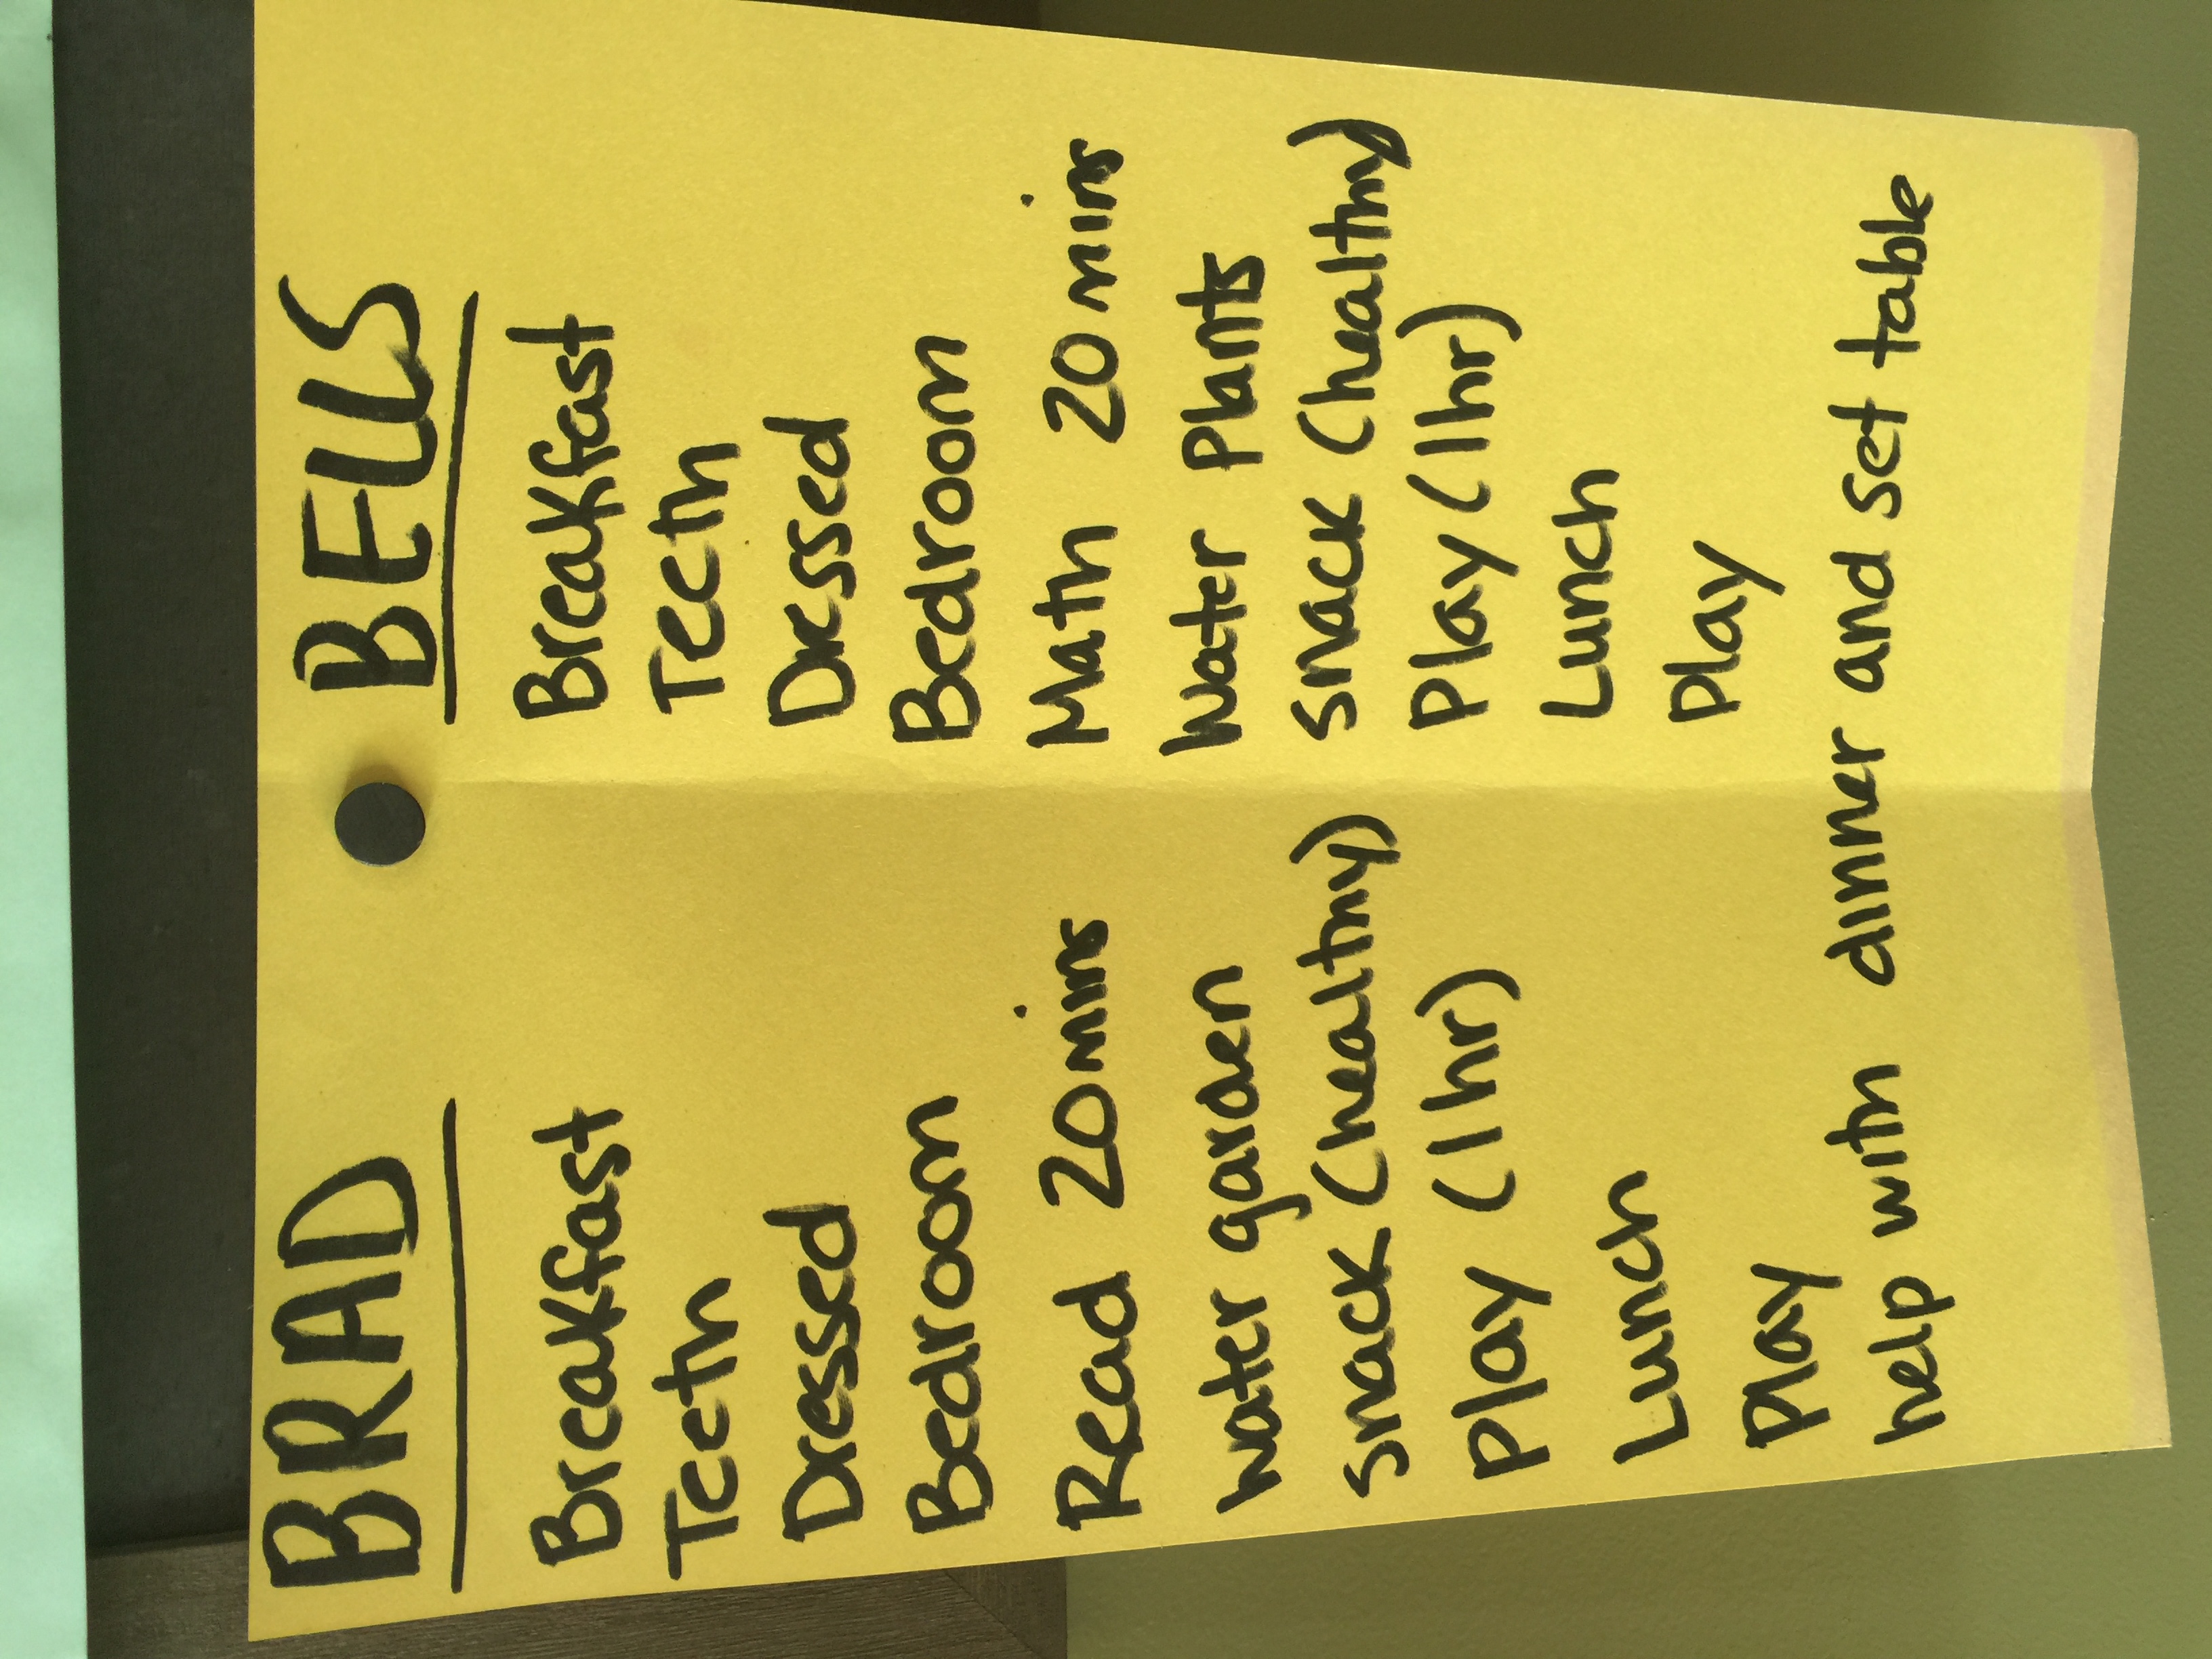 BRAD
Breakfast
Teeth
Dressed
Bedroom
Read 20 mins
water garden
snack (healthy)
Play (1 hr)
Lunch
Play
BELLS
Breakfast
Teeth
Dressed
Bedroom
Math 20 mins
Water Plants
snack (healthy)
Play (1 hr)
Lunch
Play
help with dinner and set table